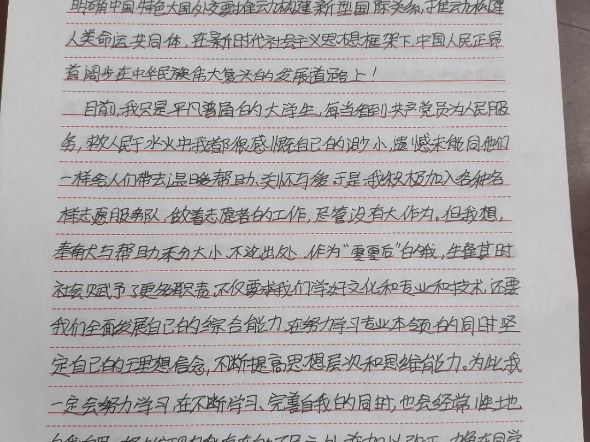 明确中国特色大国外交要推动构建新型国际关系,推动构建
人类命运共同体,在新时代社会主义思想框架下,中国人民正昂
首阔步在中华民族伟大复兴的发展道路上!
目前,我只是平凡普通的大学生,每当看到共产党员为人民服
务,救人民于水火中我都很感慨自己的渺小,遗憾未能同他们
一样给人们带去温暖帮助、关怀与爱。于是,我积极加入各种各
样志愿服务队,做着志愿者的工作,尽管没有大作为。但我想,
奉献与帮助不分大小,不论出处,作为“零零后”的我,生逢其时
社会赋予了更多职责,不仅要求我们学好文化和专业和技术,还要
我们全面发展自己的综合能力,在努力学习专业本领的同时坚
定自己的理想信念,不断提高思想层次和思维能力。为此,我
一定会努力学习,在不断学习、完善自我的同时,也会经常性地